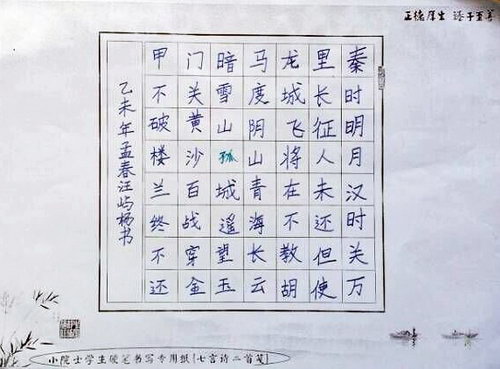 正德厚生 臻于至善
秦时明月汉时关万
里长征人未还但使
龙城飞将在不教胡
马度阴山青海长云
暗雪山孤城遥望玉
门关黄沙百战穿金
甲不破楼兰终不还
乙未年孟春汪屿杨书
小院士学生硬笔书写专用纸[七言诗二首笺]